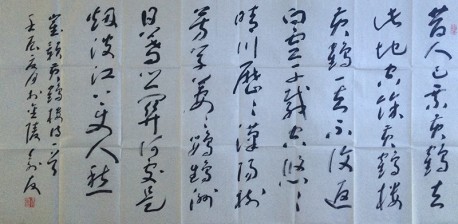 昔人已乘黄鶴去
此地空餘黄鶴樓
黄鶴一去不復返
白雲千載空悠々
晴川歷々漢陽樹
芳草萋々鸚鵡洲
日暮鄉關何處是
烟波江上使人愁
崔顥黄鶴樓詩一首
壬辰夏月於金陵